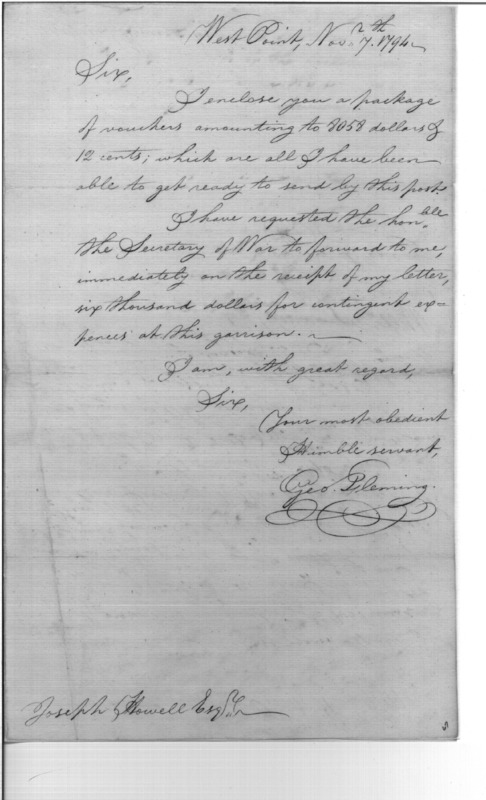 West Point, Nov. 7th. 1794
Sir,
I enclose you a package
of vouchers amounting to 8058 dollars &
12 cents; which are all I have been
able to get ready to send by this post.
I have requested the honble
the Secretary of War to forward to me,
immediately on the receipt of my letter,
six thousand dollars for contingent ex=
pences at this garrison.
I am, with great regard,
Sir,
Your most obedient
Humble servant,
Geo. Fleming.
Joseph Howell Esqr.